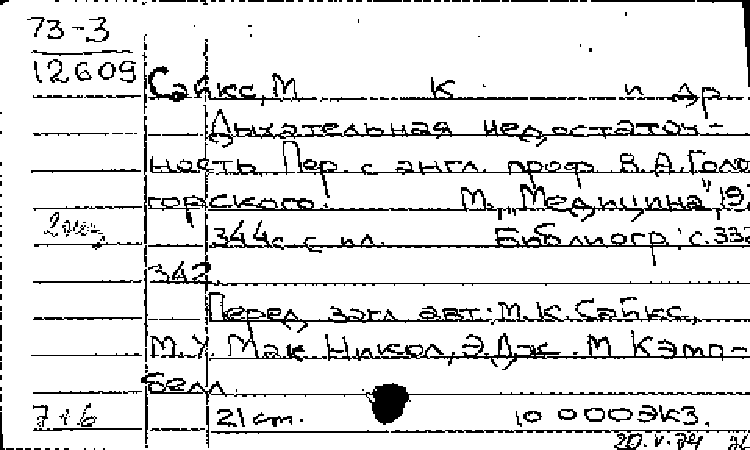 73-3
12609
Сайкс, М К и др.
Дыхательная недостаточ-
ность Пер. с англ. проф. В.А. Голо
горского. М., „Медицина", 19
2 экз
344 с с ил. Библиогр: с. 332
342.
Перед загл авт: М.К. Сайкс,
М.У. Мак Никол, Э.Дж. М Кэмп-
белл
716 21 см. 10 000 экз.
20.V.74